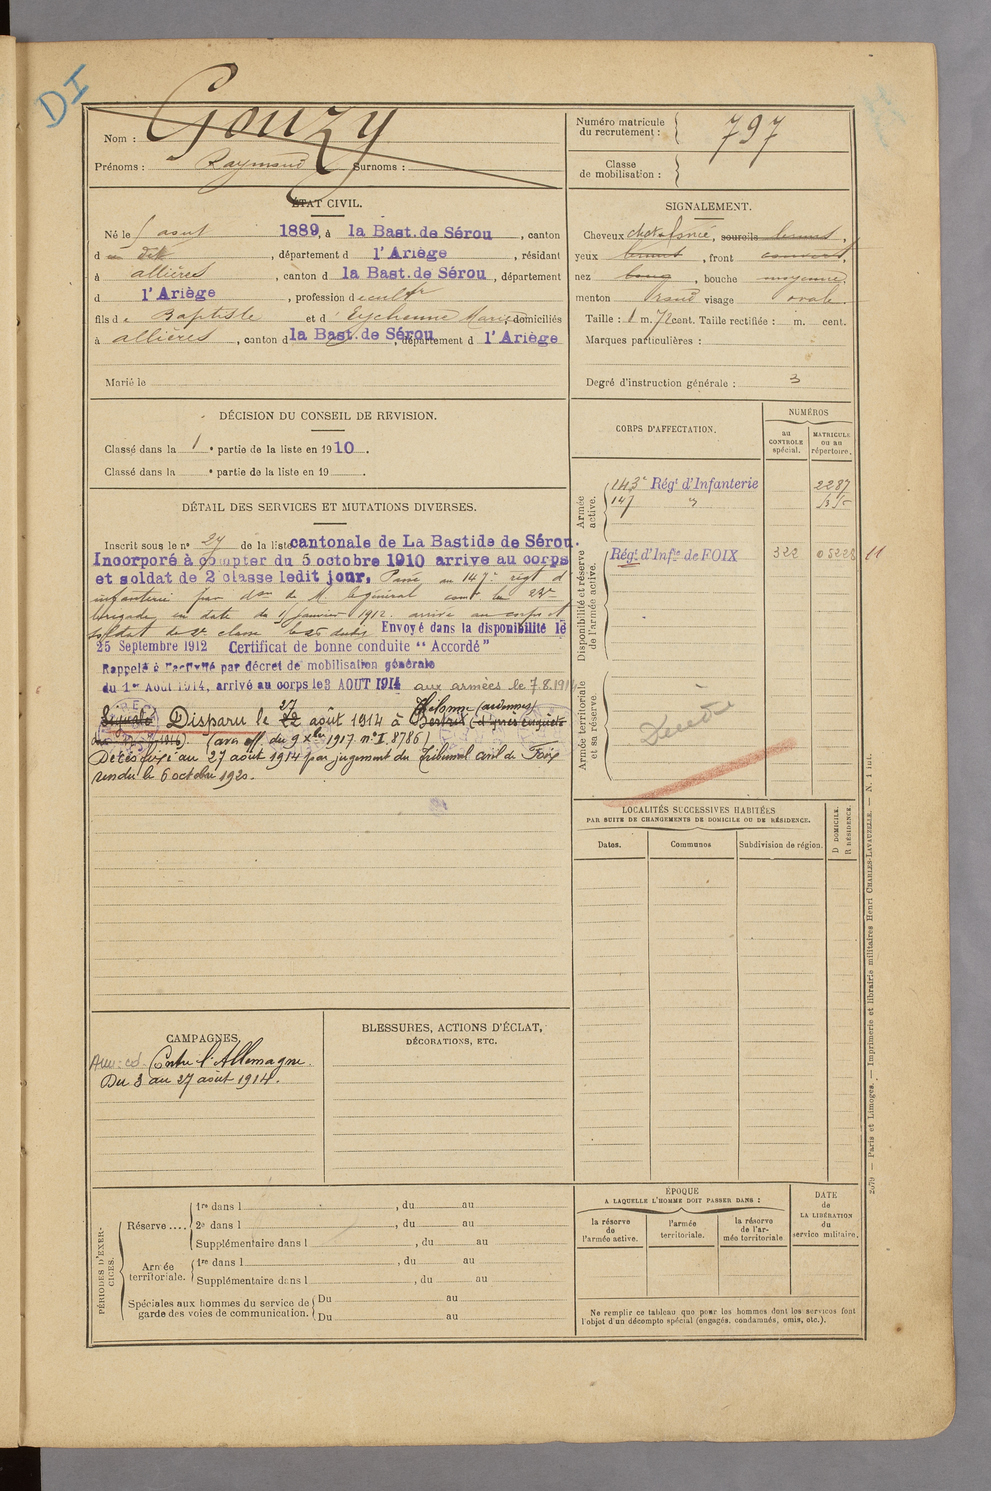 DI
Nom : Gouzy
Prénoms : Raymond Surnoms :
Numéro matricule du recrutement : 797
Classe de mobilisation :
ÉTAT CIVIL.
Né le 5 août 1889, à la Bast. de Sérou, canton
d dit, département d l'Ariège, résidant
à allières, canton d la Bast. de Sérou, département
d l'Ariège, profession de cultr
fils de Baptiste et d' Eychenne Marie, domiciliés
à allières, canton d la Bast. de Sérou, département d l'Ariège
Marié le
SIGNALEMENT.
Cheveux chat. foncé, sourcils bruns,
yeux bruns, front couvert,
nez long, bouche moyenne,
menton rond visage ovale.
Taille : 1 m. 72 cent. Taille rectifiée : m. cent.
Marques particulières :
Degré d'instruction générale : 3
DÉCISION DU CONSEIL DE REVISION.
Classé dans la 1e partie de la liste en 1910.
Classé dans la e partie de la liste en 19 .
CORPS D'AFFECTATION.
NUMÉROS
au CONTROLE spécial.
MATRICULE OU AU répertoire.
Armée active.
143e Régt d'Infanterie 2287
147 "
Disponibilité et réserve de l'armée active.
Régt d'Infie de FOIX 322 05228 11
Armée territoriale et sa réserve.
DÉTAIL DES SERVICES ET MUTATIONS DIVERSES.
Inscrit sous le n° 27 de la liste cantonale de La Bastide de Sérou.
Incorporé à compter du 5 octobre 1910 arrive au corps
et soldat de 2 classe ledit jour, Passé au 147e régt d'
infanterie par don de M. le général comt la 23e
brigade en date du janvier 1912. arrivé au corps et
soldat de 2e classe le dudit Envoyé dans la disponibilité le
25 Septembre 1912 Certificat de bonne conduite "Accordé"
Rappelé à l'activité par décret de mobilisation générale
du 1er Août 1914, arrivé au corps le 3 AOUT 1914 aux armées le 7.8.1914
27
Disparu le 22 août 1914 à Bertrix (d'après enquête
(avis off. du 9 Xbre 1917 n° I.8786)
Décès fixé au 27 août 1914 par jugement du Tribunal civil de Foix
rendu le 6 octobre 1920.
LOCALITÉS SUCCESSIVES HABITÉES
PAR SUITE DE CHANGEMENTS DE DOMICILE OU DE RÉSIDENCE.
Dates. Communes Subdivision de région. D DOMICILE. R RÉSIDENCE.
CAMPAGNES.
Contre l'Allemagne.
Du 3 au 27 août 1914.
BLESSURES, ACTIONS D'ÉCLAT,
DÉCORATIONS, ETC.
PÉRIODES D'EXERCICES.
Réserve ....
1re dans l , du au
2e dans l , du au
Supplémentaire dans l , du au
Armée territoriale.
1re dans l , du au
Supplémentaire dans l , du au
Spéciales aux hommes du service de garde des voies de communication.
Du au
Du au
ÉPOQUE
A LAQUELLE L'HOMME DOIT PASSER DANS :
la réserve de l'armée active.
l'armée territoriale.
la réserve de l'armée territoriale
DATE de LA LIBÉRATION du service militaire.
Ne remplir ce tableau que pour les hommes dont les services font
l'objet d'un décompte spécial (engagés, condamnés, omis, etc.).
Paris et Limoges. — Imprimerie et librairie militaires Henri CHARLES-LAVAUZELLE. — N. 1 int.